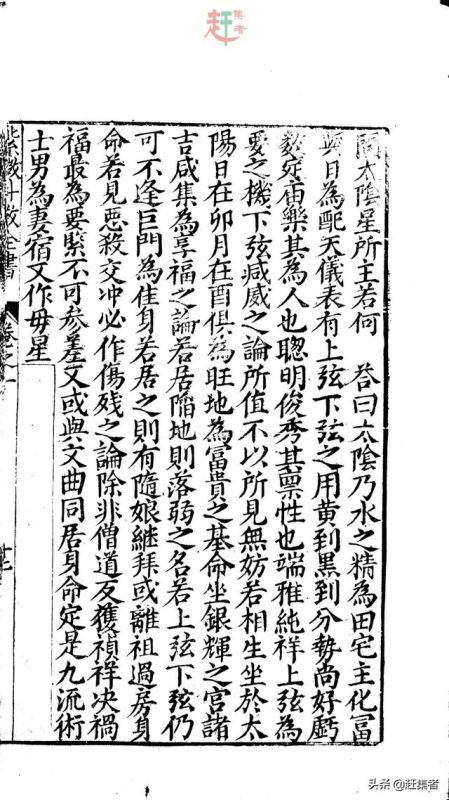 赶集者
問太陰星所主若何 答曰太陰乃水之精為田宅主化富
與日為配天儀表有上弦下弦之用黄到黑到分勢尚好虧
数定庙樂其為人也聰明俊秀其禀性也端雅純祥上弦為
要之機下弦减威之論所值不以所見無妨若相生坐於太
陽日在卯月在酉俱為旺地為富貴之基命坐銀輝之宮諸
吉咸集為享福之論若居陷地則落弱之名若上弦下弦仍
可不逢巨門為佳身若居之則有隨娘継拜或離祖過房身
命若見惡殺交冲必作傷残之論除非僧道反獲禎祥决禍
福最為要緊不可参差又或與文曲同居身命定是九流術
士男為妻宿又作毋星
紫微斗数全書 卷之一
頭条@赶集者